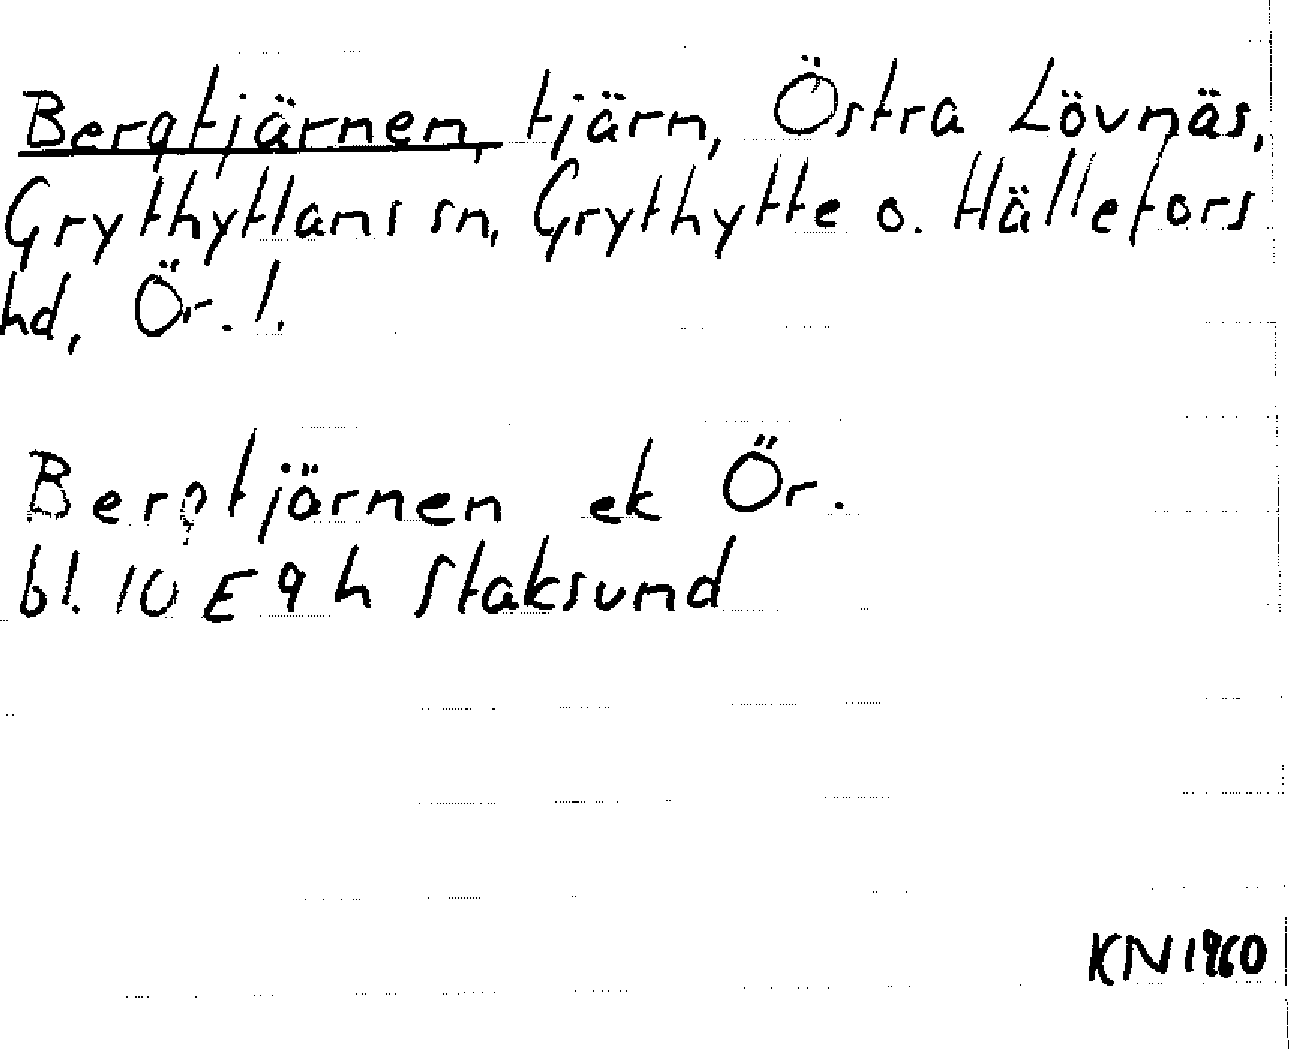 Bergtjärnen, tjärn, Östra Lövnäs,
Grythyttans sn, Grythytte o. Hällefors
hd, Ör. l.
Bergtjärnen ek Ör.
bl. 10 E 9 h Staksund
KN 1960